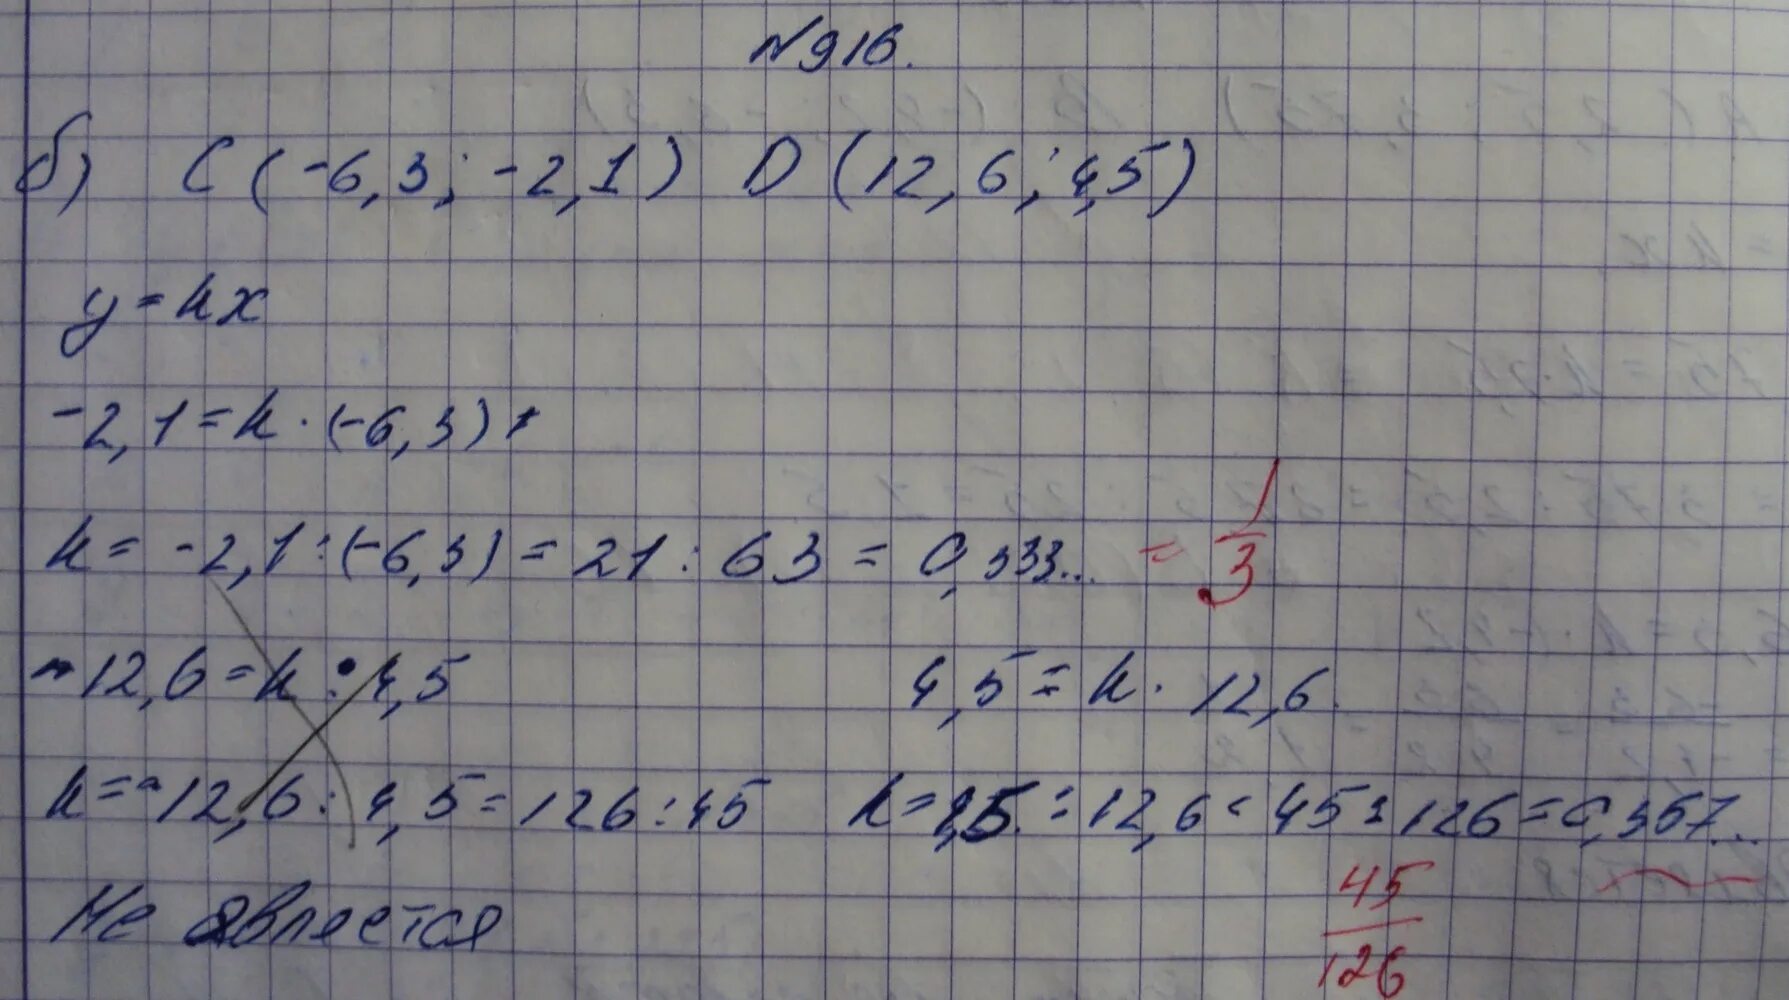 №916.
б) C (-6,3; -2,1) D (12,6; 4,5)
y = kx
-2,1 = k · (-6,3)
k = -2,1 : (-6,3) = 21 : 63 = 0,333... = 1/3
-12,6 = k : 4,5
4,5 = k · 12,6.
k = -12,6 : 4,5 = 126 : 45
k = 4,5 : 12,6 = 45 : 126 = 0,357...
45/126
Не является